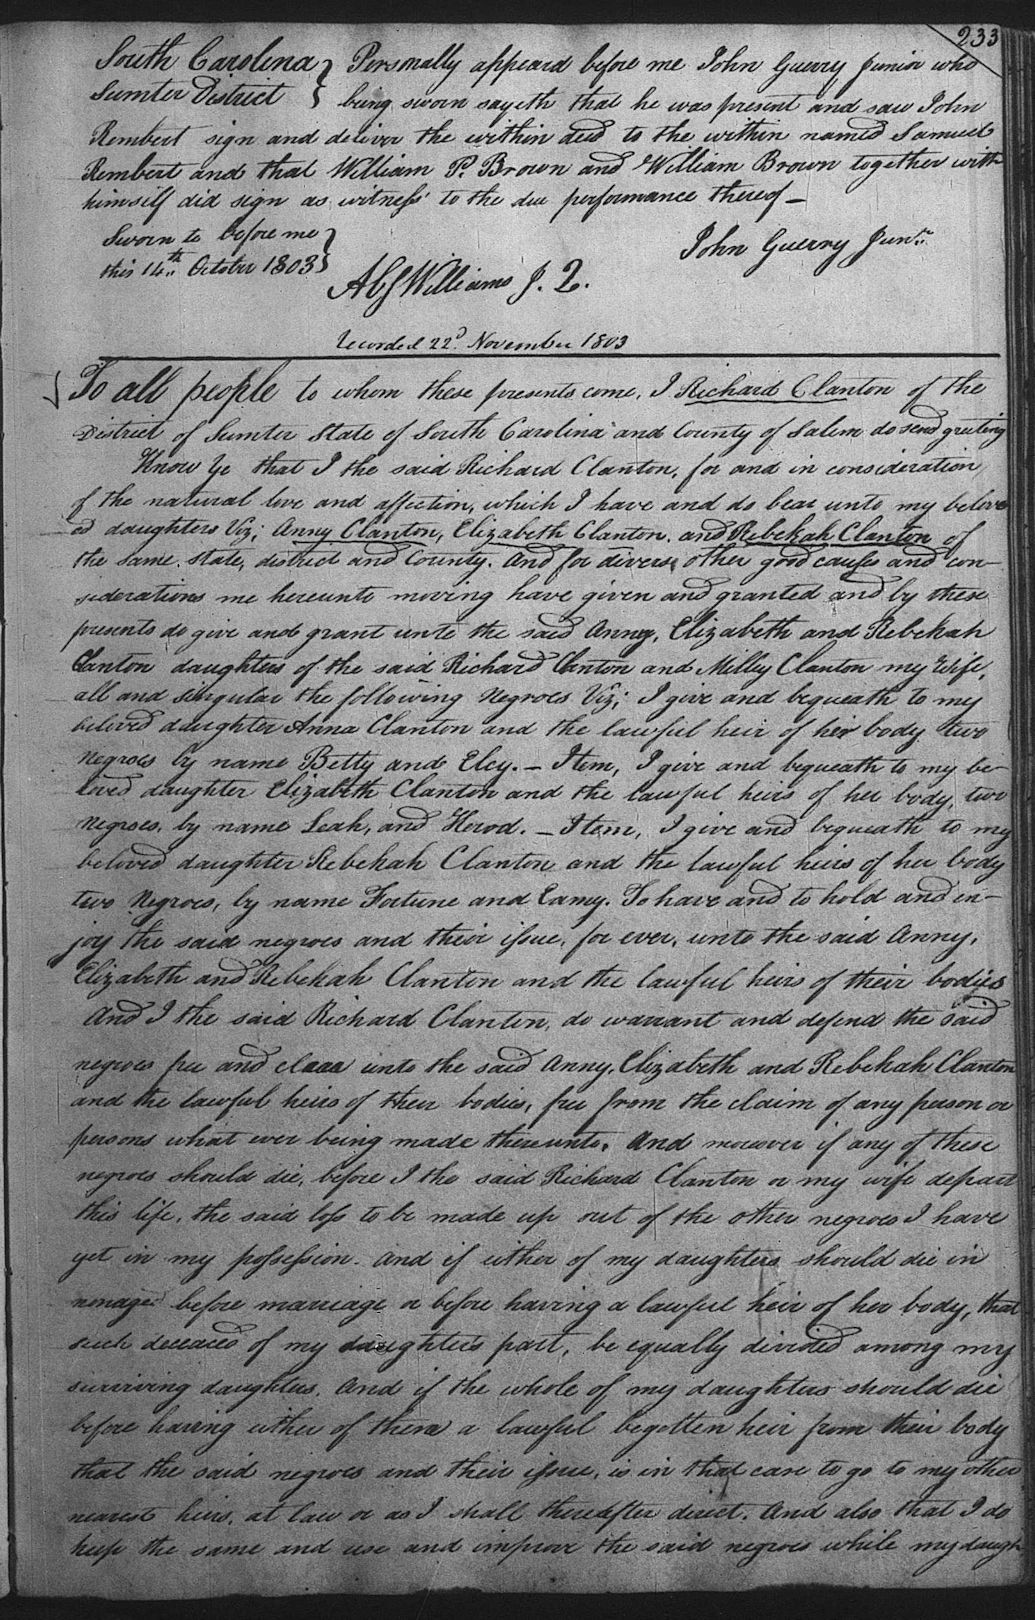 233
South Carolina } Personally appeard before me John Guerry Junior who
Sumter District } being sworn sayeth that he was present and saw John
Rembert sign and deliver the within deed to the within named Samuel
Rembert and that William P. Brown and William Brown together with
himself did sign as witness to the due performance thereof —
Sworn to before me }
this 14th October 1803 }
John Guerry Junr.
Williams J. Q.
recorded 22d November 1803
To all people to whom these presents come, I Richard Clanton of the
District of Sumter State of South Carolina and County of Salem do send greeting
Know Ye that I the said Richard Clanton, for and in consideration
of the natural love and affection, which I have and do bear unto my belov-
ed daughters Viz; Anny Clanton, Elizabeth Clanton, and Rebekah Clanton of
the same State, district and County. And for divers other good causes and con-
siderations me hereunto moving have given and granted and by these
presents do give and grant unto the said Anney, Elizabeth and Rebekah
Clanton daughters of the said Richard Clanton and Milley Clanton my Wife,
all and singular the following Negroes Viz; I give and bequeath to my
beloved daughter Anna Clanton and the lawful heir of her body two
Negroes by name Betty and Elcy. — Item, I give and bequeath to my be-
loved daughter Elizabeth Clanton and the lawful heirs of her body, two
Negroes, by name Leah, and Herod. — Item, I give and bequeath to my
beloved daughter Rebekah Clanton and the lawful heirs of her body
two Negroes, by name Fortune and Eamy. To have and to hold and in-
joy the said negroes and their issue, for ever, unto the said Anny,
Elizabeth and Rebekah Clanton and the lawful heirs of their bodies
And I the said Richard Clanton, do warrant and defend the said
negroes free and clear unto the said Anny, Elizabeth and Rebekah Clanton
and the lawful heirs of their bodies, free from the claim of any person or
persons what ever being made thereunto. And moreover if any of these
negroes should die, before I the said Richard Clanton or my wife depart
this life, the said loss to be made up out of the other negroes I have
yet in my possession. and if either of my daughters should die in
nonage before marriage or before having a lawful heir of her body, that
such deceased of my daughters part, be equally divided among my
surviving daughters. And if the whole of my daughters should die
before having either of them a lawful begotten heir from their body
that the said negroes and their issue, is in that case to go to my other
nearest heirs, at law or as I shall thereafter direct. And also that I do
keep the same and use and improve the said negroes while my daugh-